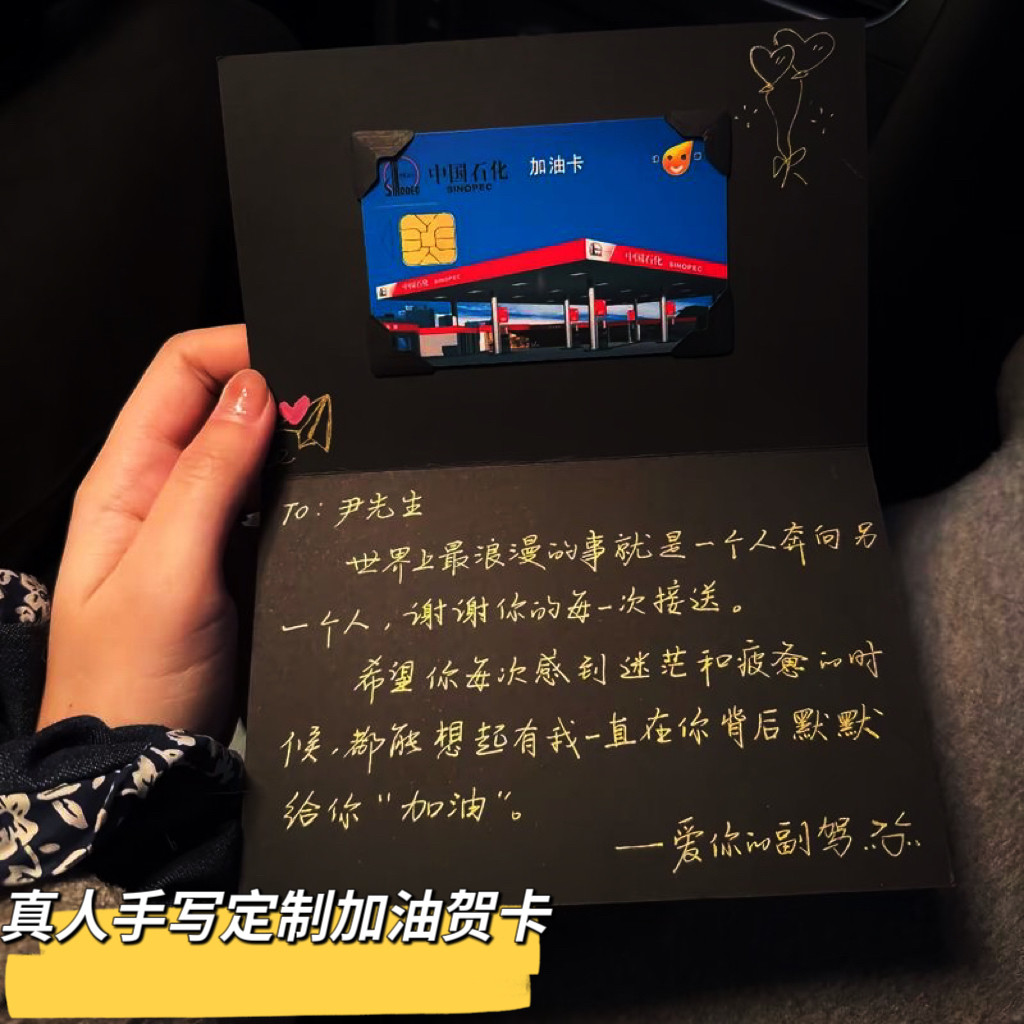 SINOPEC
中国石化 加油卡
SINOPEC
中国石化 SINOPEC
中国石化 SINOPEC
To: 尹先生
世界上最浪漫的事就是一个人奔向另
一个人，谢谢你的每一次接送。
希望你每次感到迷茫和疲惫的时
候，都能想起有我一直在你背后默默
给你"加油"。
—爱你的副驾
真人手写定制加油贺卡